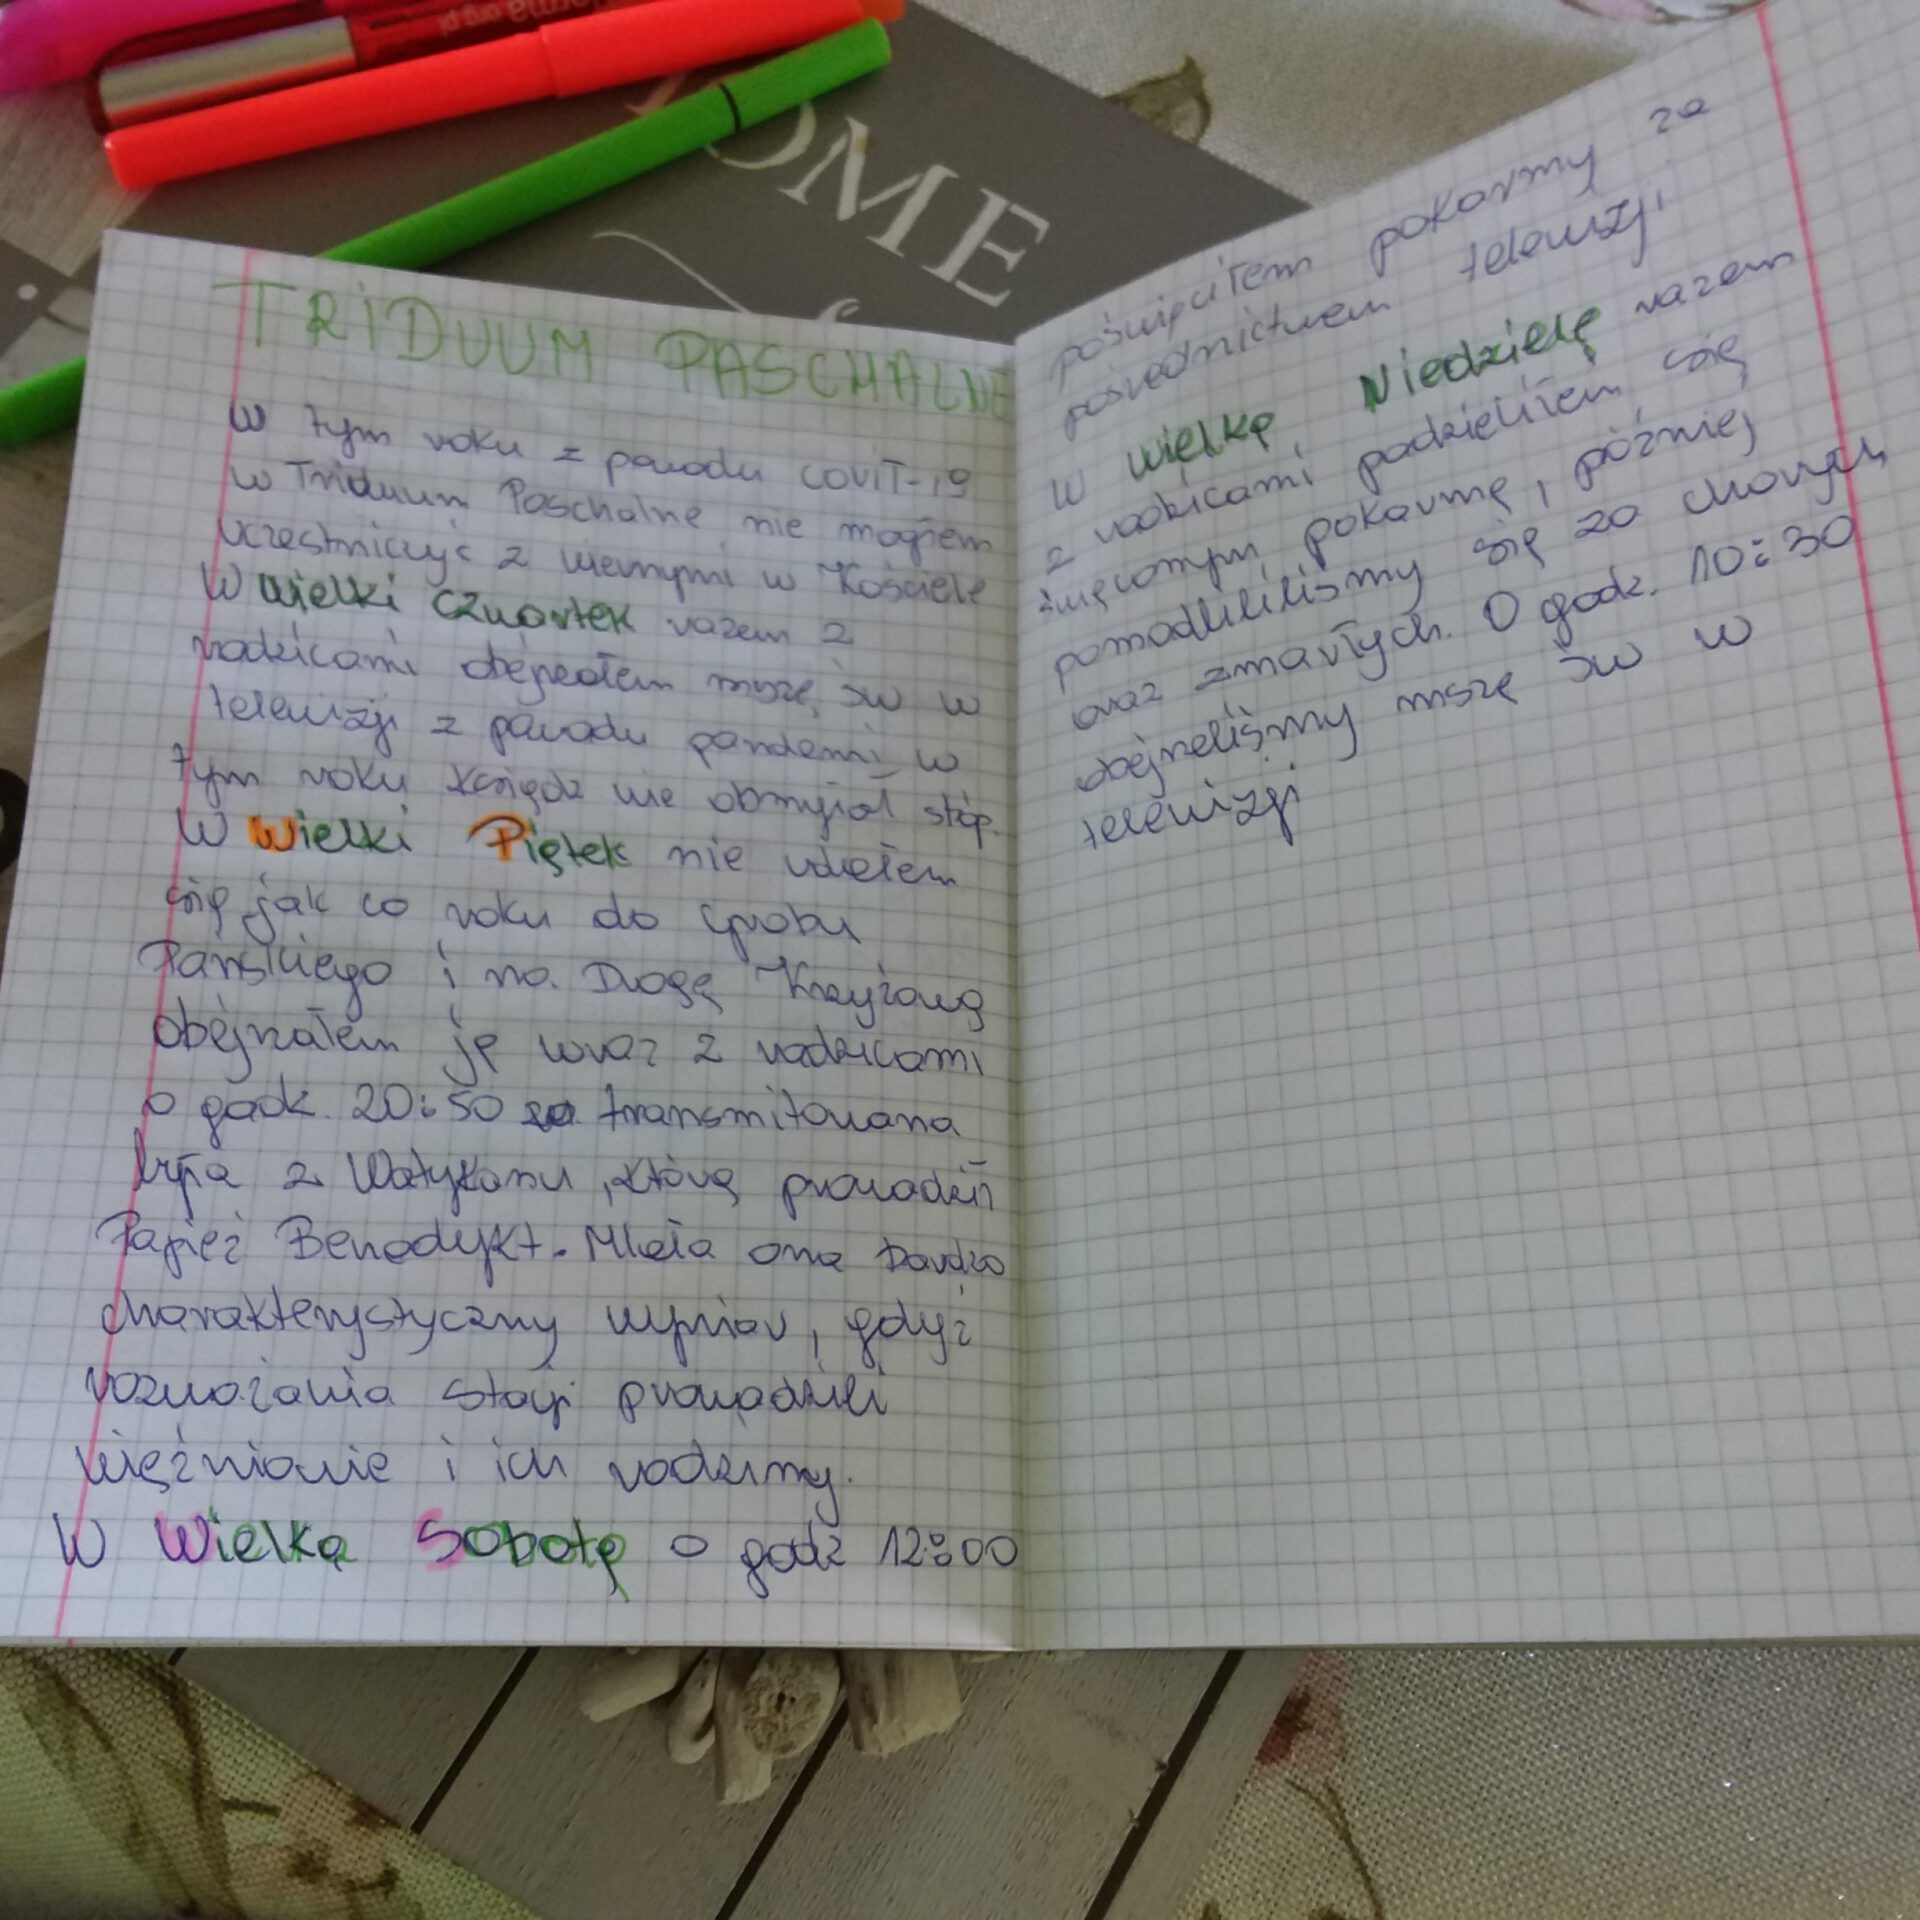 OME
TRIDUUM PASCHALNE
W tym roku z powodu COVIT-19
w Triduum Paschalne nie mogłem
uczestniczyć z wiernymi w Kościele
W Wielki Czwartek razem z
rodzicami obejrzałem mszę św w
telewizji z powodu pandemi w
tym roku ksiądz nie obmyiał stóp.
W Wielki Piątek nie udałem
się jak co roku do Grobu
Pańskiego i na Drogę Krzyżową
obejrzałem ją wraz z rodzicami
o godz. 20:50 transmitowana
była z Watykanu, którą prowadził
Papież Benedykt. Miała ona bardzo
charakterystyczny wymiar, gdyż
rozważania stacji prowadzili
więźniowie i ich rodziny.
W Wielką Sobotę o godz 12:00
poświęciłem pokarmy za
pośrednictwem telewizji
W Wielką Niedzielę razem
z rodzicami podzieliłem się
święconym pokarmę, później
pomodliliśmy się za chorych
oraz zmarłych. O godz. 10:30
obejrzeliśmy mszę św w
telewizji